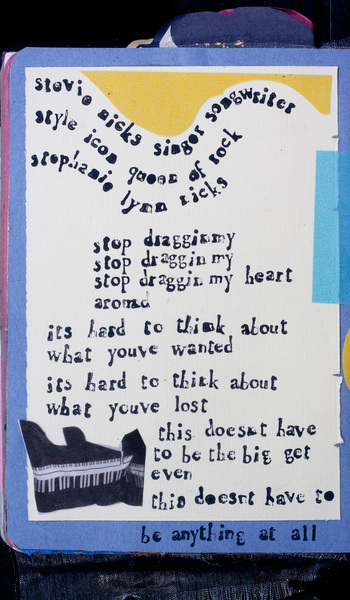 stevie nicks singer songwriter
style icon queen of rock
stephanie lynn nicks
stop draggin my
stop draggin my
stop draggin my heart
around
its hard to think about
what youve wanted
its hard to think about
what youve lost
this doesnt have
to be the big get
even
this doesnt have to
be anything at all